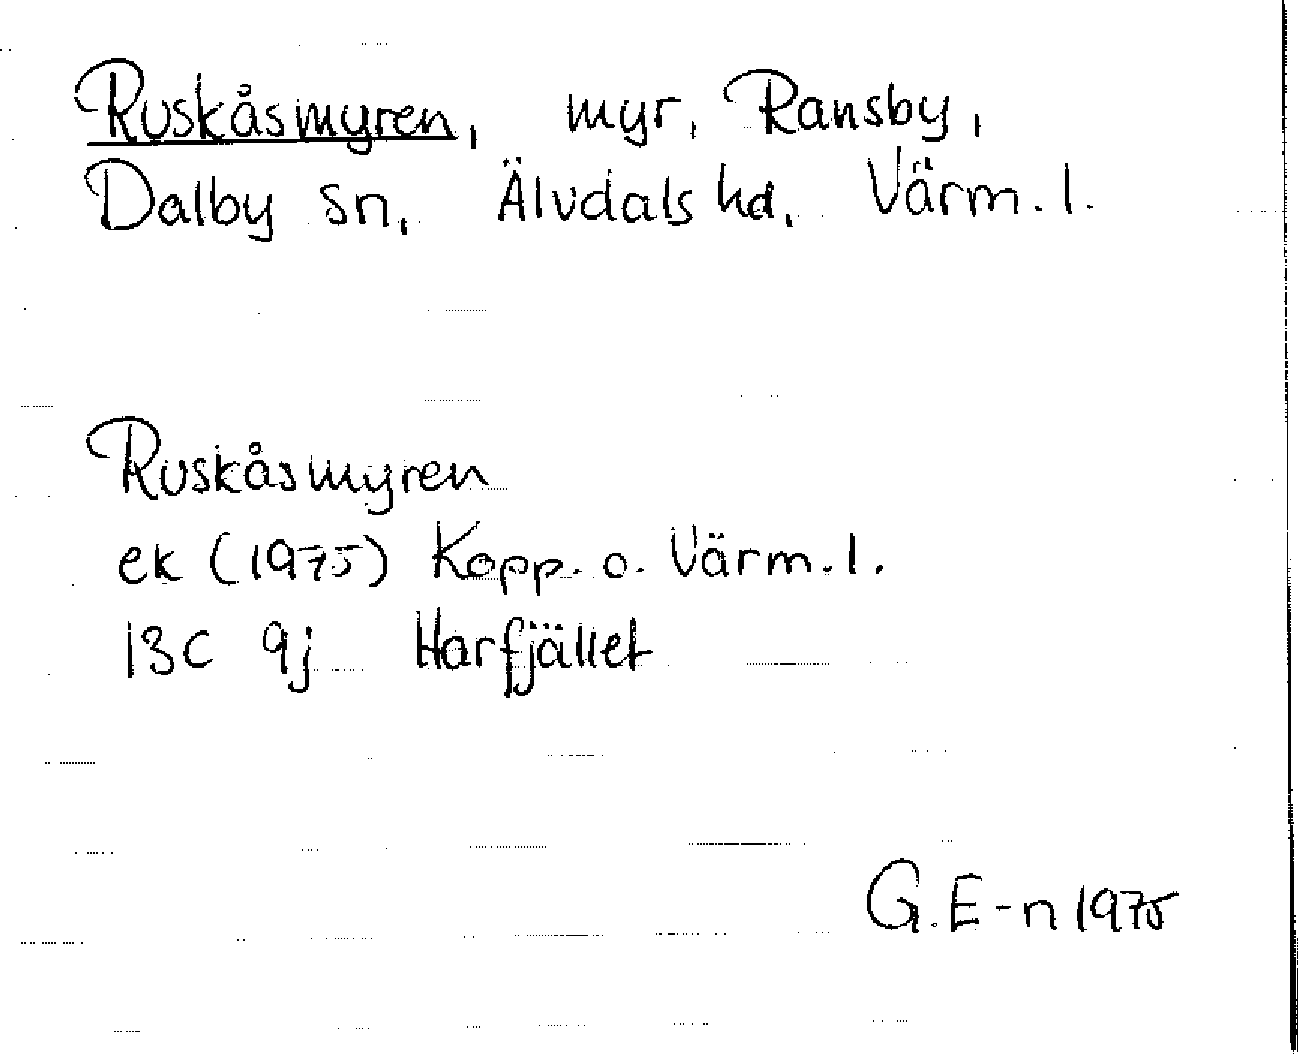 Ruskåsmyren, myr, Ransby,
Dalby sn, Älvdals hd, Värm. l.
Ruskåsmyren
ek (1975) Kopp. o. Värm. l.
13C 9j Harfjället
G. E-n 1975